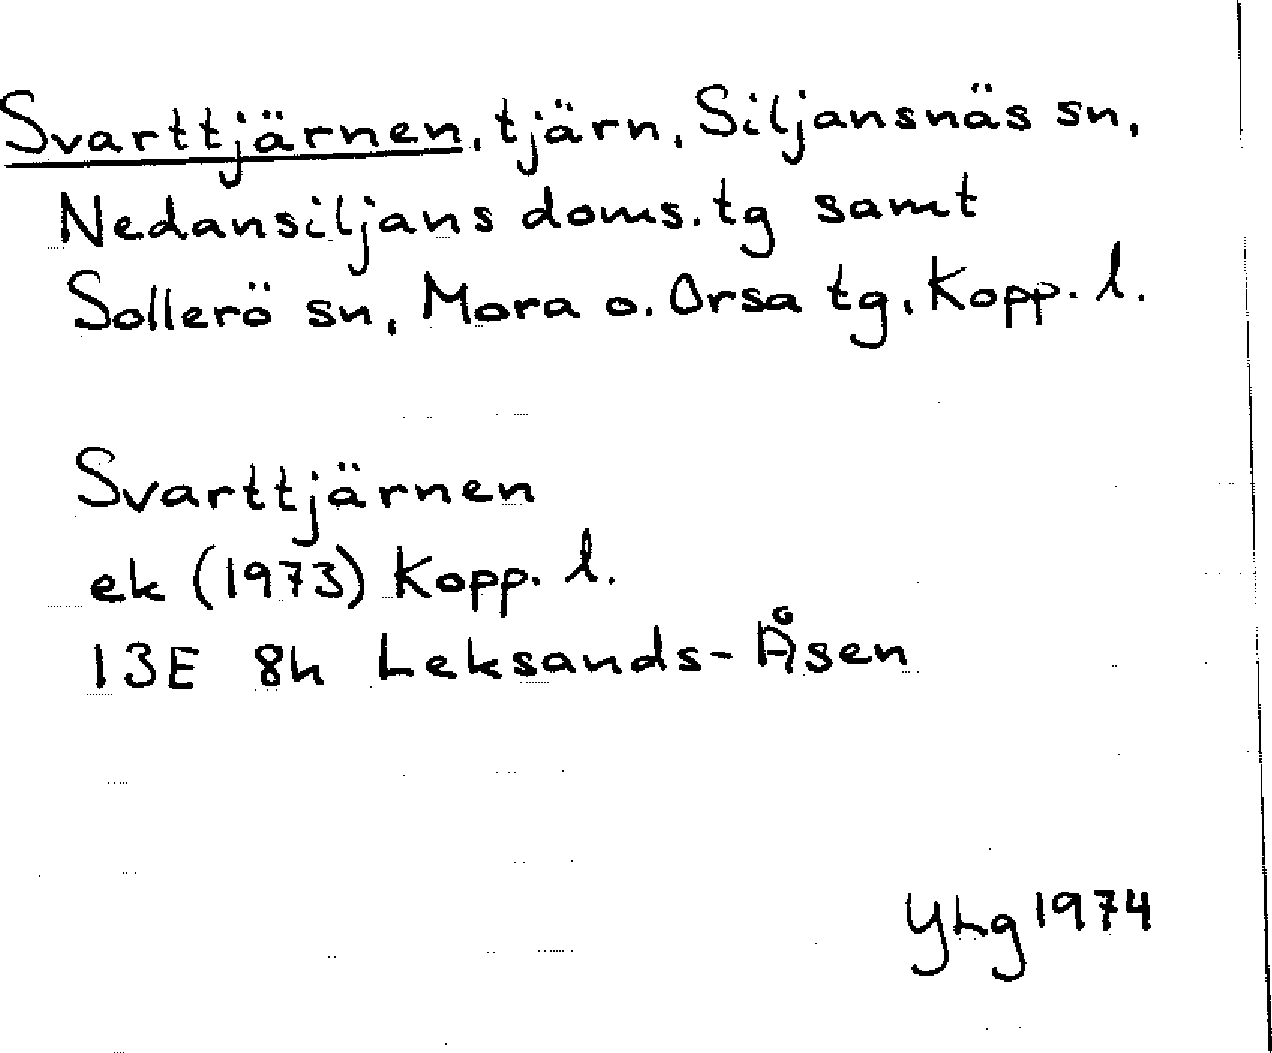 Svarttjärnen, tjärn, Siljansnäs sn,
Nedansiljans doms. tg samt
Sollerö sn, Mora o. Orsa tg, Kopp. l.
Svarttjärnen
ek (1973) Kopp. l.
13E 8h Leksands-Åsen
YLg 1974